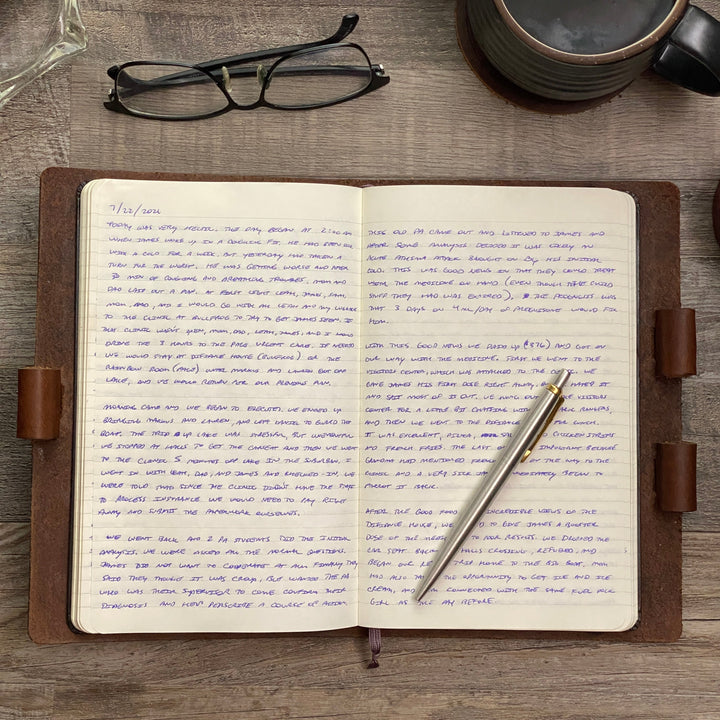 7/22/2021
TODAY WAS VERY HECTIC. THE DAY BEGAN AT 2:00 AM
WHEN JAMES WOKE UP IN A COUGHING FIT. HE HAD BEEN
WITH A COLD FOR A WEEK, BUT YESTERDAY HAD TAKEN A
TURN FOR THE WORST. HE WAS GETTING WORSE AND AFTER
MIN OF COUGHING AND BREATHING TROUBLES, MOM AND
DAD LAID OUT A PLAN. AT FIRST LIGHT LEAH, JAMES, SAM,
MOM, DAD, AND I WOULD GO WITH ALL
TO THE CLINIC AT BULLFROG TO TRY TO GET JAMES SEEN. IF
THAT CLINIC WASN'T OPEN, MOM, DAD, LEAH, JAMES, AND I WOULD
DRIVE THE 3 HOURS TO THE PAGE URGENT CARE. IF NEEDED
WE WOULD STAY AT DEFIANCE HOUSE (BULLFROG) OR THE
RAINBOW ROOM (PAGE) UNTIL MARCUS AND LAUREN GOT OFF
LAKE, AND WE WOULD RETURN FOR OUR PERSONS
MORNING CAME AND WE BEGAN TO EXECUTE. WE ENDED UP
BRINGING MARCUS AND LAUREN, AND LEFT DANIEL TO GUARD THE
BOAT. THE TRIP UP LAKE WAS STRESSFUL, BUT UNEVENTFUL
WE STOPPED AT HALLS TO GET THE CAR AND THEN WE WENT
TO THE CLINIC 5 MINUTES UP LAKE IN THE SUBURBAN. I
WENT IN WITH LEAH, DAD, AND JAMES AND CHECKED-IN. WE
WERE TOLD THAT SINCE THE CLINIC DIDN'T HAVE THE
TO PROCESS INSURANCE WE WOULD NEED TO PAY RIGHT
AWAY AND SUBMIT THE PAPERWORK OURSELVES.
WE WENT BACK AND 2 PA STUDENTS DID THE INITIAL
ANALYSIS. WE WERE ASKED ALL THE NORMAL QUESTIONS.
JAMES DID NOT WANT TO COOPERATE AT ALL. FINALLY THEY
SAID THEY THOUGHT IT WAS CROUP, BUT WANTED THE PA
WHO WAS THEIR SUPERVISOR TO COME CONFIRM THEIR
DIAGNOSIS AND HELP PERSCRIBE A COURSE OF ACTION.
THIS OLD PA CAME OUT AND LISTENED TO JAMES AND
AFTER SOME ANALYSIS DECIDED IT WAS LIKELY AN
ACUTE ASTHMA ATTACK BROUGHT ON BY HIS INITIAL
COLD. THIS WAS GOOD NEWS IN THAT THEY COULD TREAT
WITH THE MEDICINE ON HAND (EVEN THOUGH THE CHILD
SYRUP THEY HAD WAS EXPIRED), THE PROGNOSIS WAS
THAT 3 DAYS ON 4 ML/DAY OF PREDNISONE WOULD FIX
HIM.
WITH THIS GOOD NEWS WE PAID UP ($876) AND GOT ON
OUR WAY WITH THE MEDICINE. FIRST WE WENT TO THE
VISITOR CENTER, WHICH WAS ATTACHED TO THE WE
GAVE JAMES HIS FIRST DOSE RIGHT AWAY. HATED IT
AND SPIT MOST OF IS OUT. WE HUNG OUT VISITORS
CENTER FOR A LITTLE BIT CHATTING WITH RANGERS,
AND THEN WE WENT TO THE DEFIANCE FOR LUNCH.
IT WAS EXCELLENT, PIZZA, CHICKEN STRIPS
AND FRENCH FRIES. THE LAST IMPORTANT BECAUSE
GRANDMA HAD MENTIONED THE WAY TO THE
CLINIC AND A VERY SICK IMMEDIATELY BEGAN TO
PARROT IT BACK.
AFTER THE GOOD FOOD INCREDIBLE VIEWS OF THE
DEFIANCE HOUSE, WE TO GIVE JAMES A BOOSTER
DOSE OF THE TO POOR RESULTS. WE DROPPED THE
CAR SEAT BACK HALLS CROSSING, REFUELED, AND
BEGAN OUR TRIP HOME TO THE BIG BOAT. MOM
HAD ALSO THE OPPORTUNITY TO GET ICE AND ICE
CREAM, AND CONNECTED WITH THE SAME
GIRL AS THE DAY BEFORE.